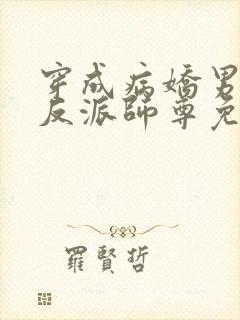 穿成病嬌男
反派師尊免
羅賢哲